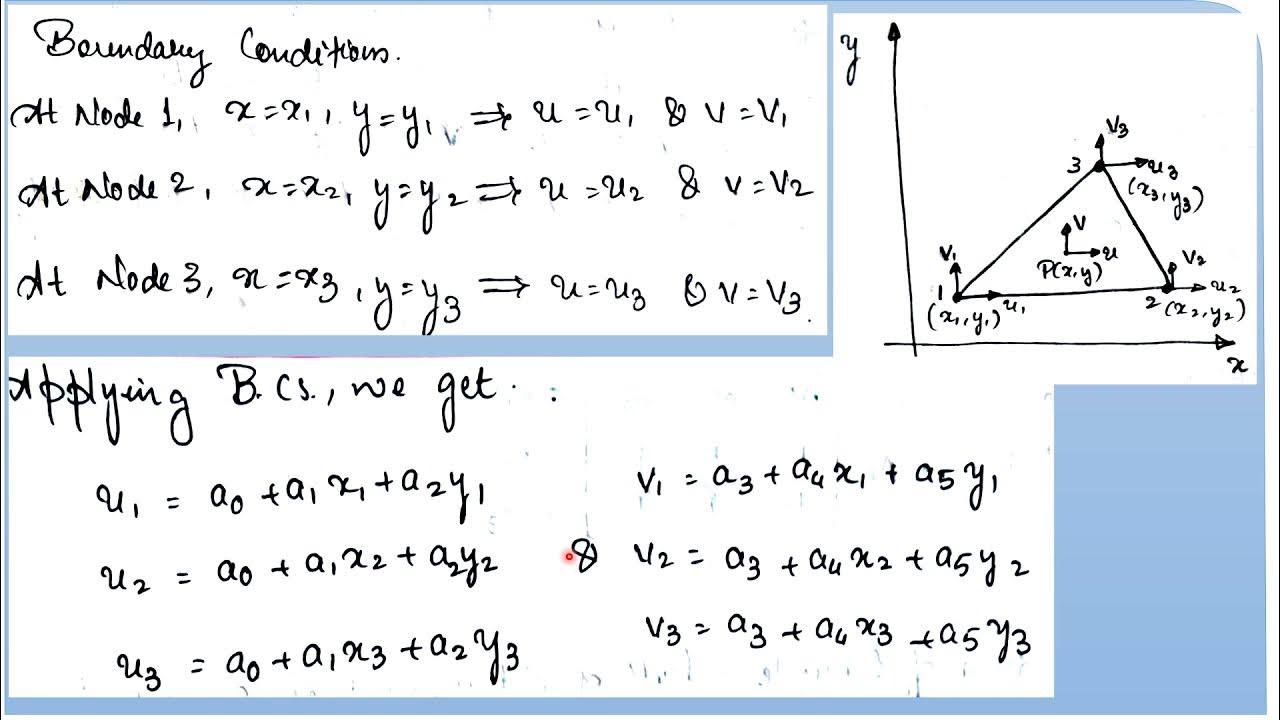 Boundary Conditions.
At Node 1, x = x₁, y = y₁ ⇒ u = u₁ & v = v₁
At Node 2, x = x₂, y = y₂ ⇒ u = u₂ & v = v₂
At Node 3, x = x₃, y = y₃ ⇒ u = u₃ & v = v₃.
y
v₃
3
u₃
(x₃, y₃)
v
u
P(x,y)
v₁
1
u₁
(x₁, y₁)
v₂
2
u₂
(x₂, y₂)
x
Applying B.Cs., we get :
u₁ = a₀ + a₁x₁ + a₂y₁ v₁ = a₃ + a₄x₁ + a₅y₁
u₂ = a₀ + a₁x₂ + a₂y₂ & v₂ = a₃ + a₄x₂ + a₅y₂
u₃ = a₀ + a₁x₃ + a₂y₃ v₃ = a₃ + a₄x₃ + a₅y₃